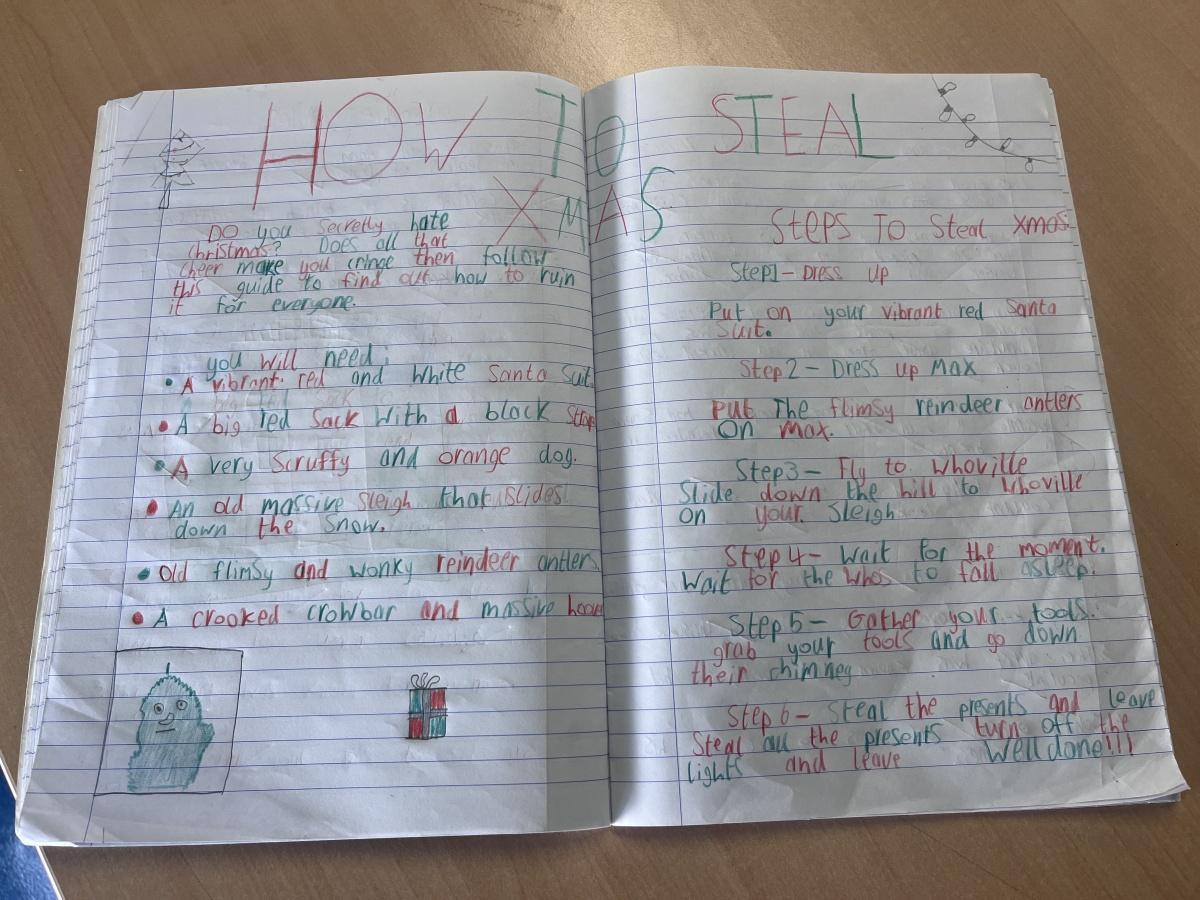 HOW TO STEAL
XMAS
DO you secretly hate
christmas? Does all that
cheer make you cringe then follow
this guide to find out how to ruin
it for everyone.
you will need:
• A vibrant red and white Santa suit
• A big red sack with a black strap
• A very scruffy and orange dog.
• An old massive sleigh that slides
down the snow.
• Old flimsy and wonky reindeer antlers
• A crooked crowbar and massive
Steps To Steal xmas:
Step1 - Dress up
Put on your vibrant red Santa
suit.
Step 2 - Dress up Max
Put The flimsy reindeer antlers
on max.
Step3 - Fly to whoville
Slide down the hill to whoville
on your sleigh
Step 4 - Wait for the moment.
Wait for the whos to fall asleep.
Step 5 - Gather your tools.
grab your tools and go down
their chimney
Step 6 - Steal the presents and leave
Steal all the presents turn off the
lights and leave Well done!!!